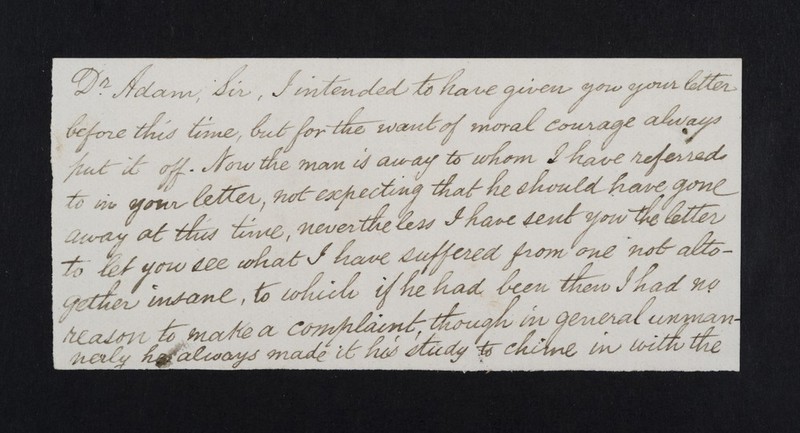 Dr Adam, Sir, I intended to have given you your letter
before this time, but for the want of moral courage always
put it off. Now the man is away to whom I have referred
to in your letter, not expecting that he should have gone
away at this time, nevertheless I have sent you the letter
to let you see what I have suffered from one not alto-
gether insane, to which if he had been then I had no
reason to make a complaint, though in general unman-
nerly he always made it his study to chime in with the